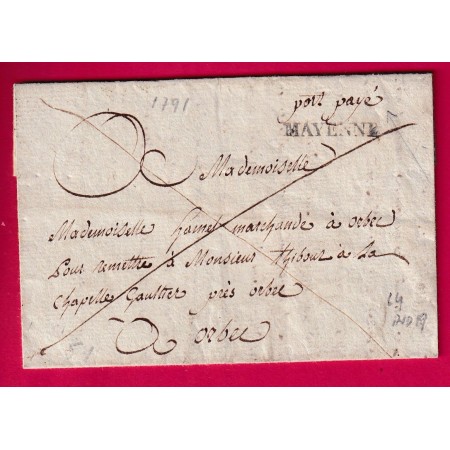 1791
port payé
MAYENNE
Mademoiselle
Mademoiselle hamel marchande à orbec
Pour remettre à Monsieur thibout à La
Chapelle Gaultier près orbec
à orbec